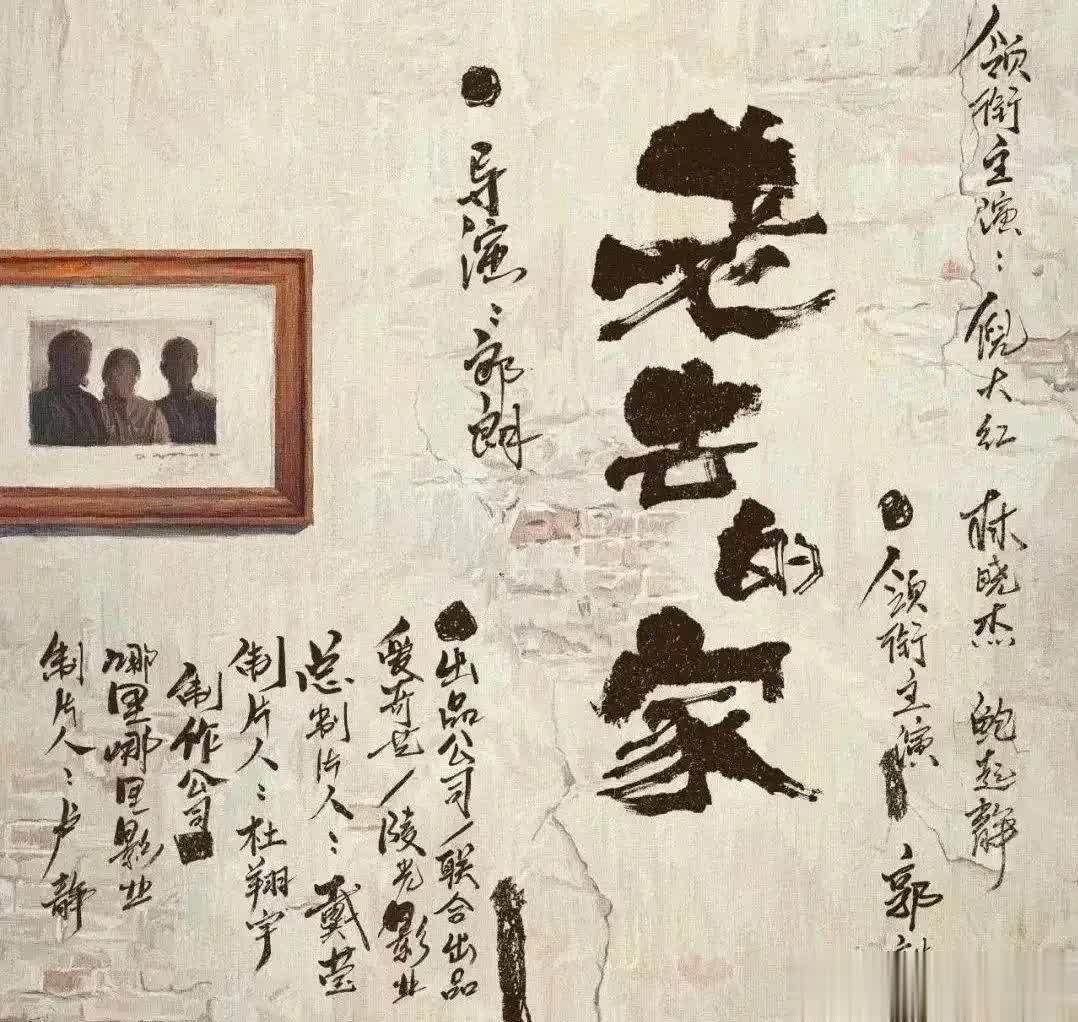 领衔主演：倪大红 林晓杰 鲍起静
领衔主演：郭
老去的家
导演：郭朗
出品公司/联合出品
爱奇艺/陵光影业
总制片人：戴莹
制片人：杜翔宇
制作公司
哪里哪里影业
制片人：卢静